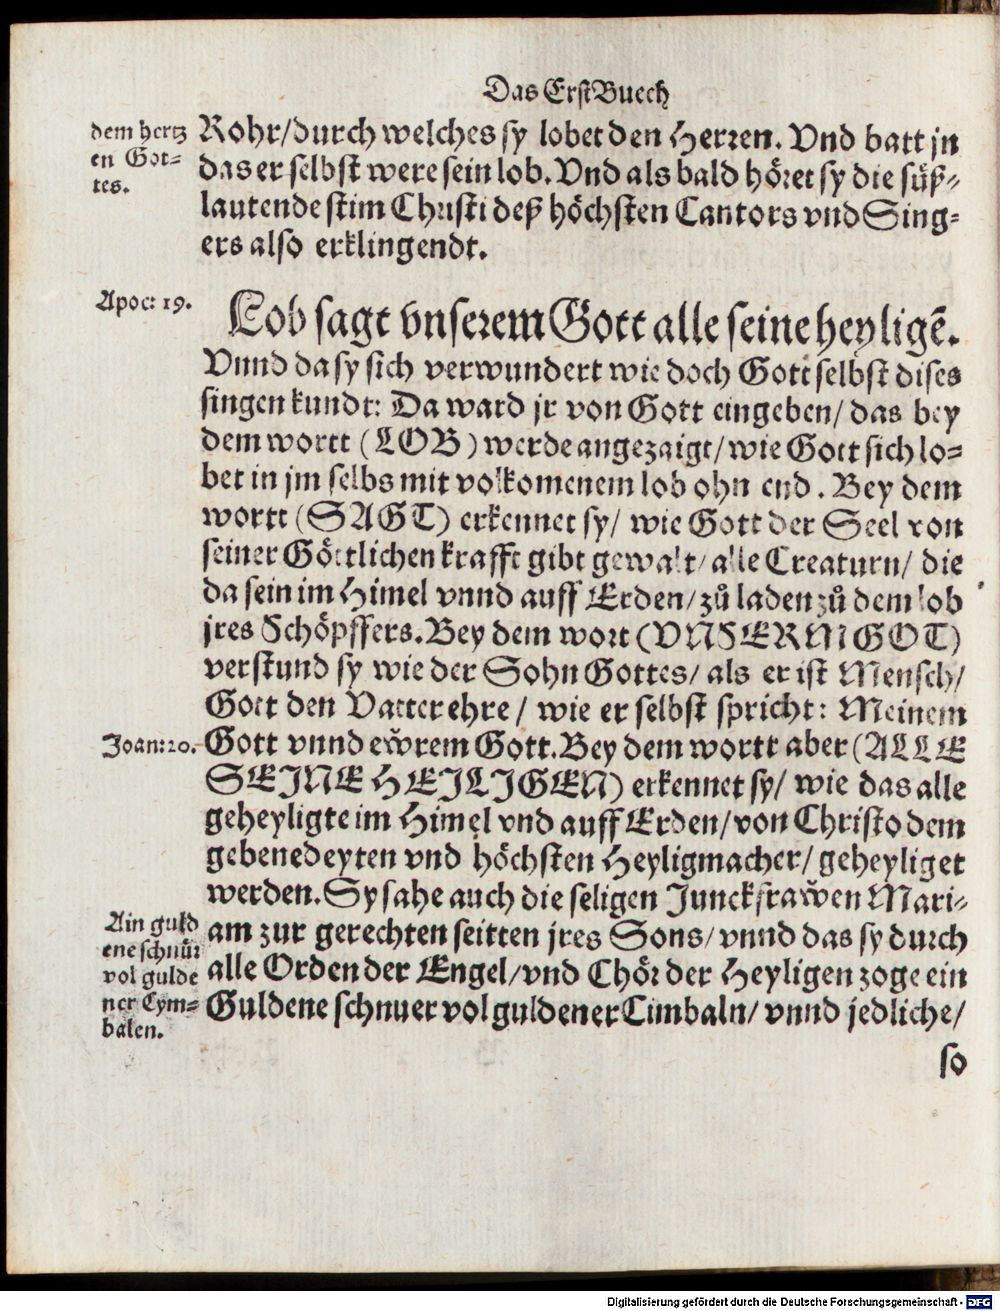 Das Erst Buech
dem hertz
en Got=
tes.
Rohr/durch welches sy lobet den Herren. Vnd batt jn
das er selbst were sein lob. Vnd als bald höret sy die süß=
lautende stim Christi deß höchsten Cantors vnd Sing=
ers also erklingendt.
Apoc: 19.
Lob sagt vnserem Gott alle seine heyligẽ.
Vnnd da sy sich verwundert wie doch Gott selbst dises
singen kundt: Da ward jr von Gott eingeben/ das bey
dem wortt (LOB) werde angezaigt/ wie Gott sich lo=
bet in jm selbs mit volkomenem lob ohn end. Bey dem
wortt (SAGT) erkennet sy/ wie Gott der Seel von
seiner Göttlichen krafft gibt gewalt/ alle Creaturn/ die
da sein im Himel vnnd auff Erden/ zů laden zů dem lob
jres Schöpffers. Bey dem wort (VNSERM GOT)
verstund sy wie der Sohn Gottes/ als er ist Mensch/
Gott den Vatter ehre/ wie er selbst spricht: Meinem
Joan: 20.
Gott vnnd ew̆rem Gott. Bey dem wortt aber (ALLE
SEINE HEILIGEN) erkennet sy/ wie das alle
geheyligte im Himel vnd auff Erden/ von Christo dem
gebenedeyten vnd höchsten Heyligmacher/ geheyliget
werden. Sy sahe auch die seligen Junckfraw̆en Mari=
am zur gerechten seitten jres Sons/ vnnd das sy durch
alle Orden der Engel/ vnd Chör der Heyligen zoge ein
Guldene schnuer vol guldener Cimbaln/ vnnd jedliche/
Ain guld
ene schnůr
vol gulde
ner Cym=
balen.
so
Digitalisierung gefördert durch die Deutsche Forschungsgemeinschaft - DFG